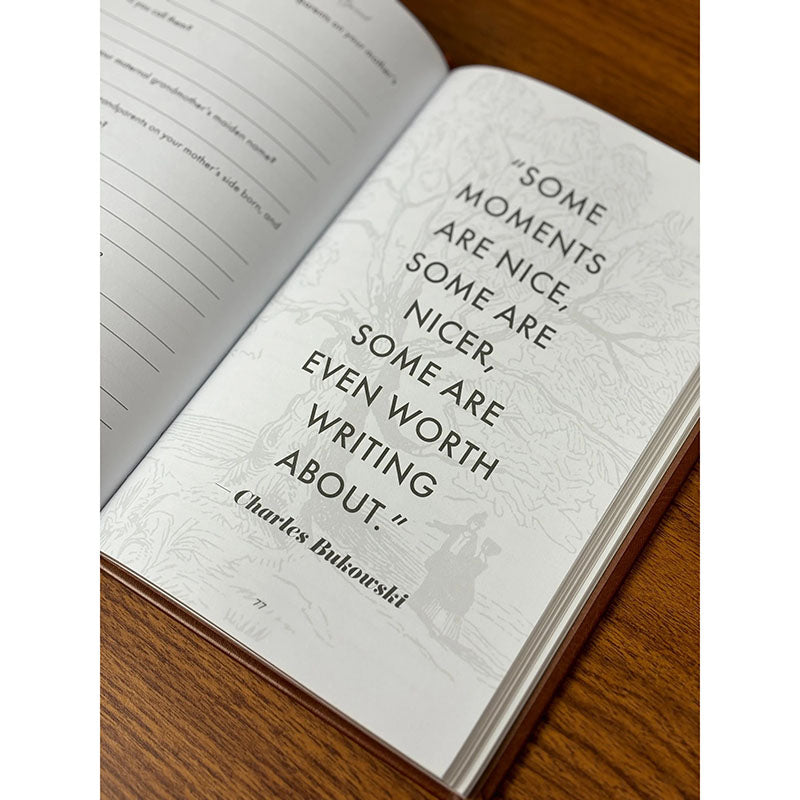 parents on your mother's
you call them?
your maternal grandmother's maiden name?
grandparents on your mother's side born, and
?
"SOME
MOMENTS
ARE NICE,
SOME ARE
NICER,
SOME ARE
EVEN WORTH
WRITING
ABOUT."
—Charles Bukowski
77